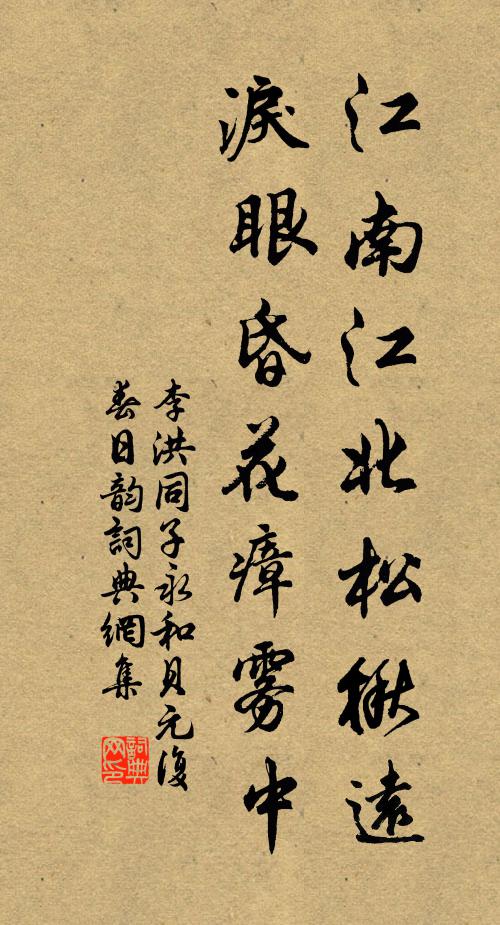 江南江北松楸遠
淚眼昏花瘴雾中
李洪同子永和貝元復
春日韵詞典網集
詞典网印